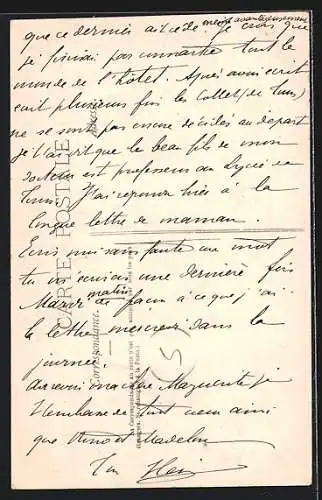 que ce dernier ait cédé. Je crois que
je finirai par connaître tout le
monde de l'hôtel. Après avoir écrit
écrit plusieurs fois les Collet (de Tunis)
ne se sont pas encore décidés au départ
je t'ai dit que le beau fils de mon
docteur est professeur au Lycée de
Tunis. J'ai répondu hier à la
longue lettre de maman.
Ecris moi sans faute un mot
tu m'écriras une dernière fois
Mardi matin de façon à ce que j'ai
la lettre mercredi dans la
journée.
Au revoir ma chère Marguerite je
t'embrasse de tout cœur ainsi
que Madelin
Ton
CARTE POSTALE
Correspondance